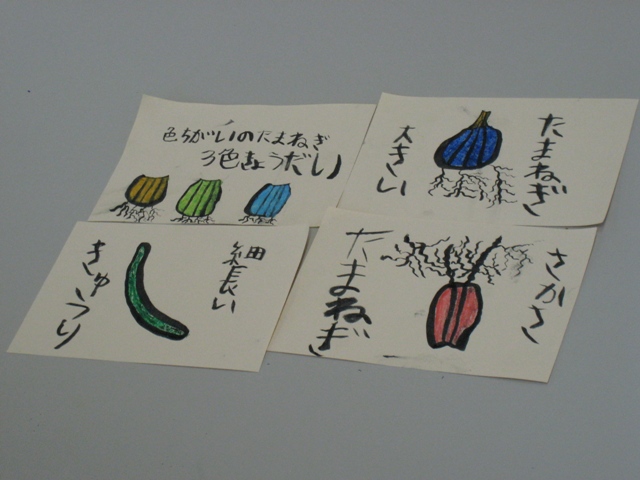 色ちがいのたまねぎ
3色きょうだい
たまねぎ
大きい
細長い
きゅうり
さかさ
たまねぎ